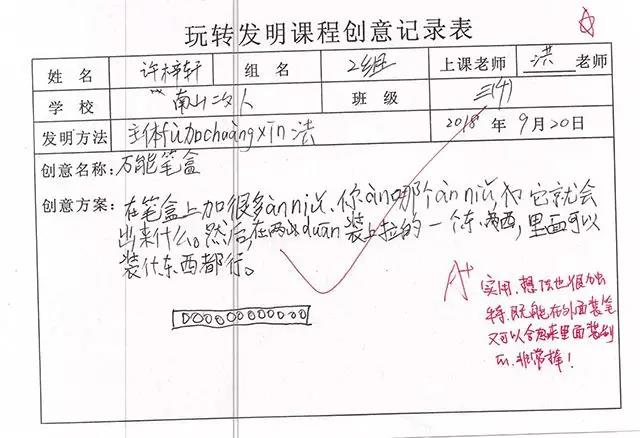 玩转发明课程创意记录表
姓 名 许梓轩 组 名 2组 上课老师 洪 老师
学 校 南山二外 班 级 三(4)
发明方法 主体fù加chuàngxīn法 2018 年 9月20日
创意名称:万能笔盒
创意方案:在笔盒上加很多ànniǔ、你àn哪个ànniǔ,它就会
出来什么。然后,在两duān装上拉的一个东西,里面可以
装什东西都行。
A+
实用、想法也很独
特,既能在外面装笔
又可以合起来里面装别
的,非常棒!